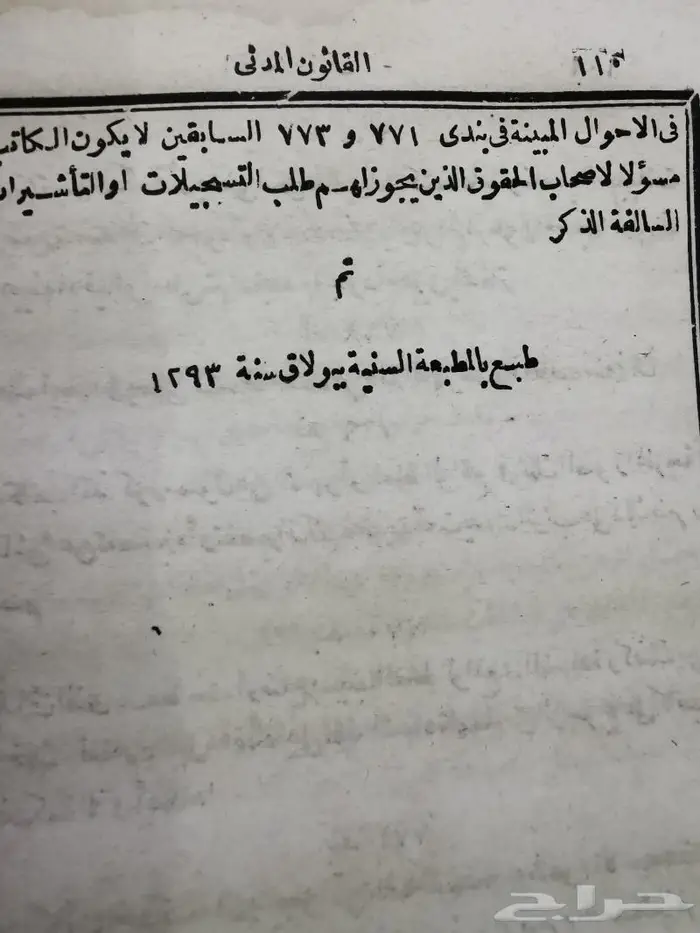 القانون المدنى
فى الاحوال المبينة فى بندى ٧٧١ و ٧٧٣ السابقين لا يكون الكاتب
مسؤلا لاصحاب الحقوق الذين يجوز لهم طلب التسجيلات او التأشيرات
السالفة الذكر
تم
طبع بالمطبعة السنية ببولاق سنة ١٢٩٣
حراج